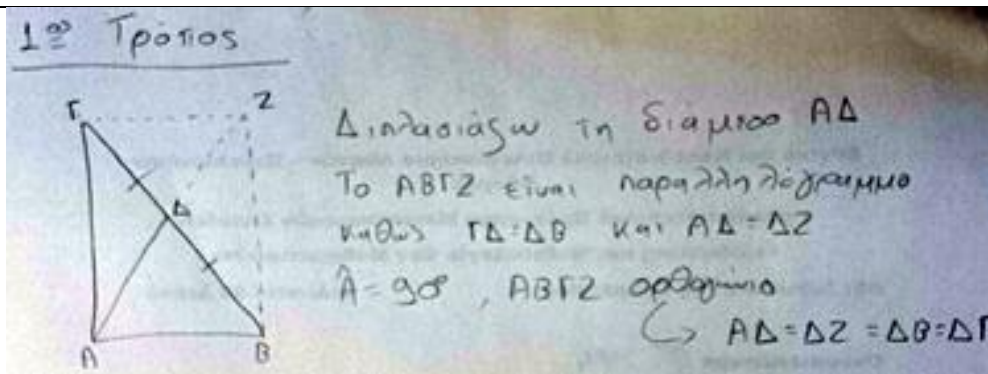 1ος Τρόπος
Γ
Ζ
Δ
Α
Β
Διπλασιάζω τη διάμεσο ΑΔ
Το ΑΒΓΖ είναι παραλληλόγραμμο
καθώς ΓΔ=ΔΒ και ΑΔ=ΔΖ
Â=90°, ΑΒΓΖ ορθογώνιο
↳ ΑΔ=ΔΖ=ΔΒ=ΔΓ